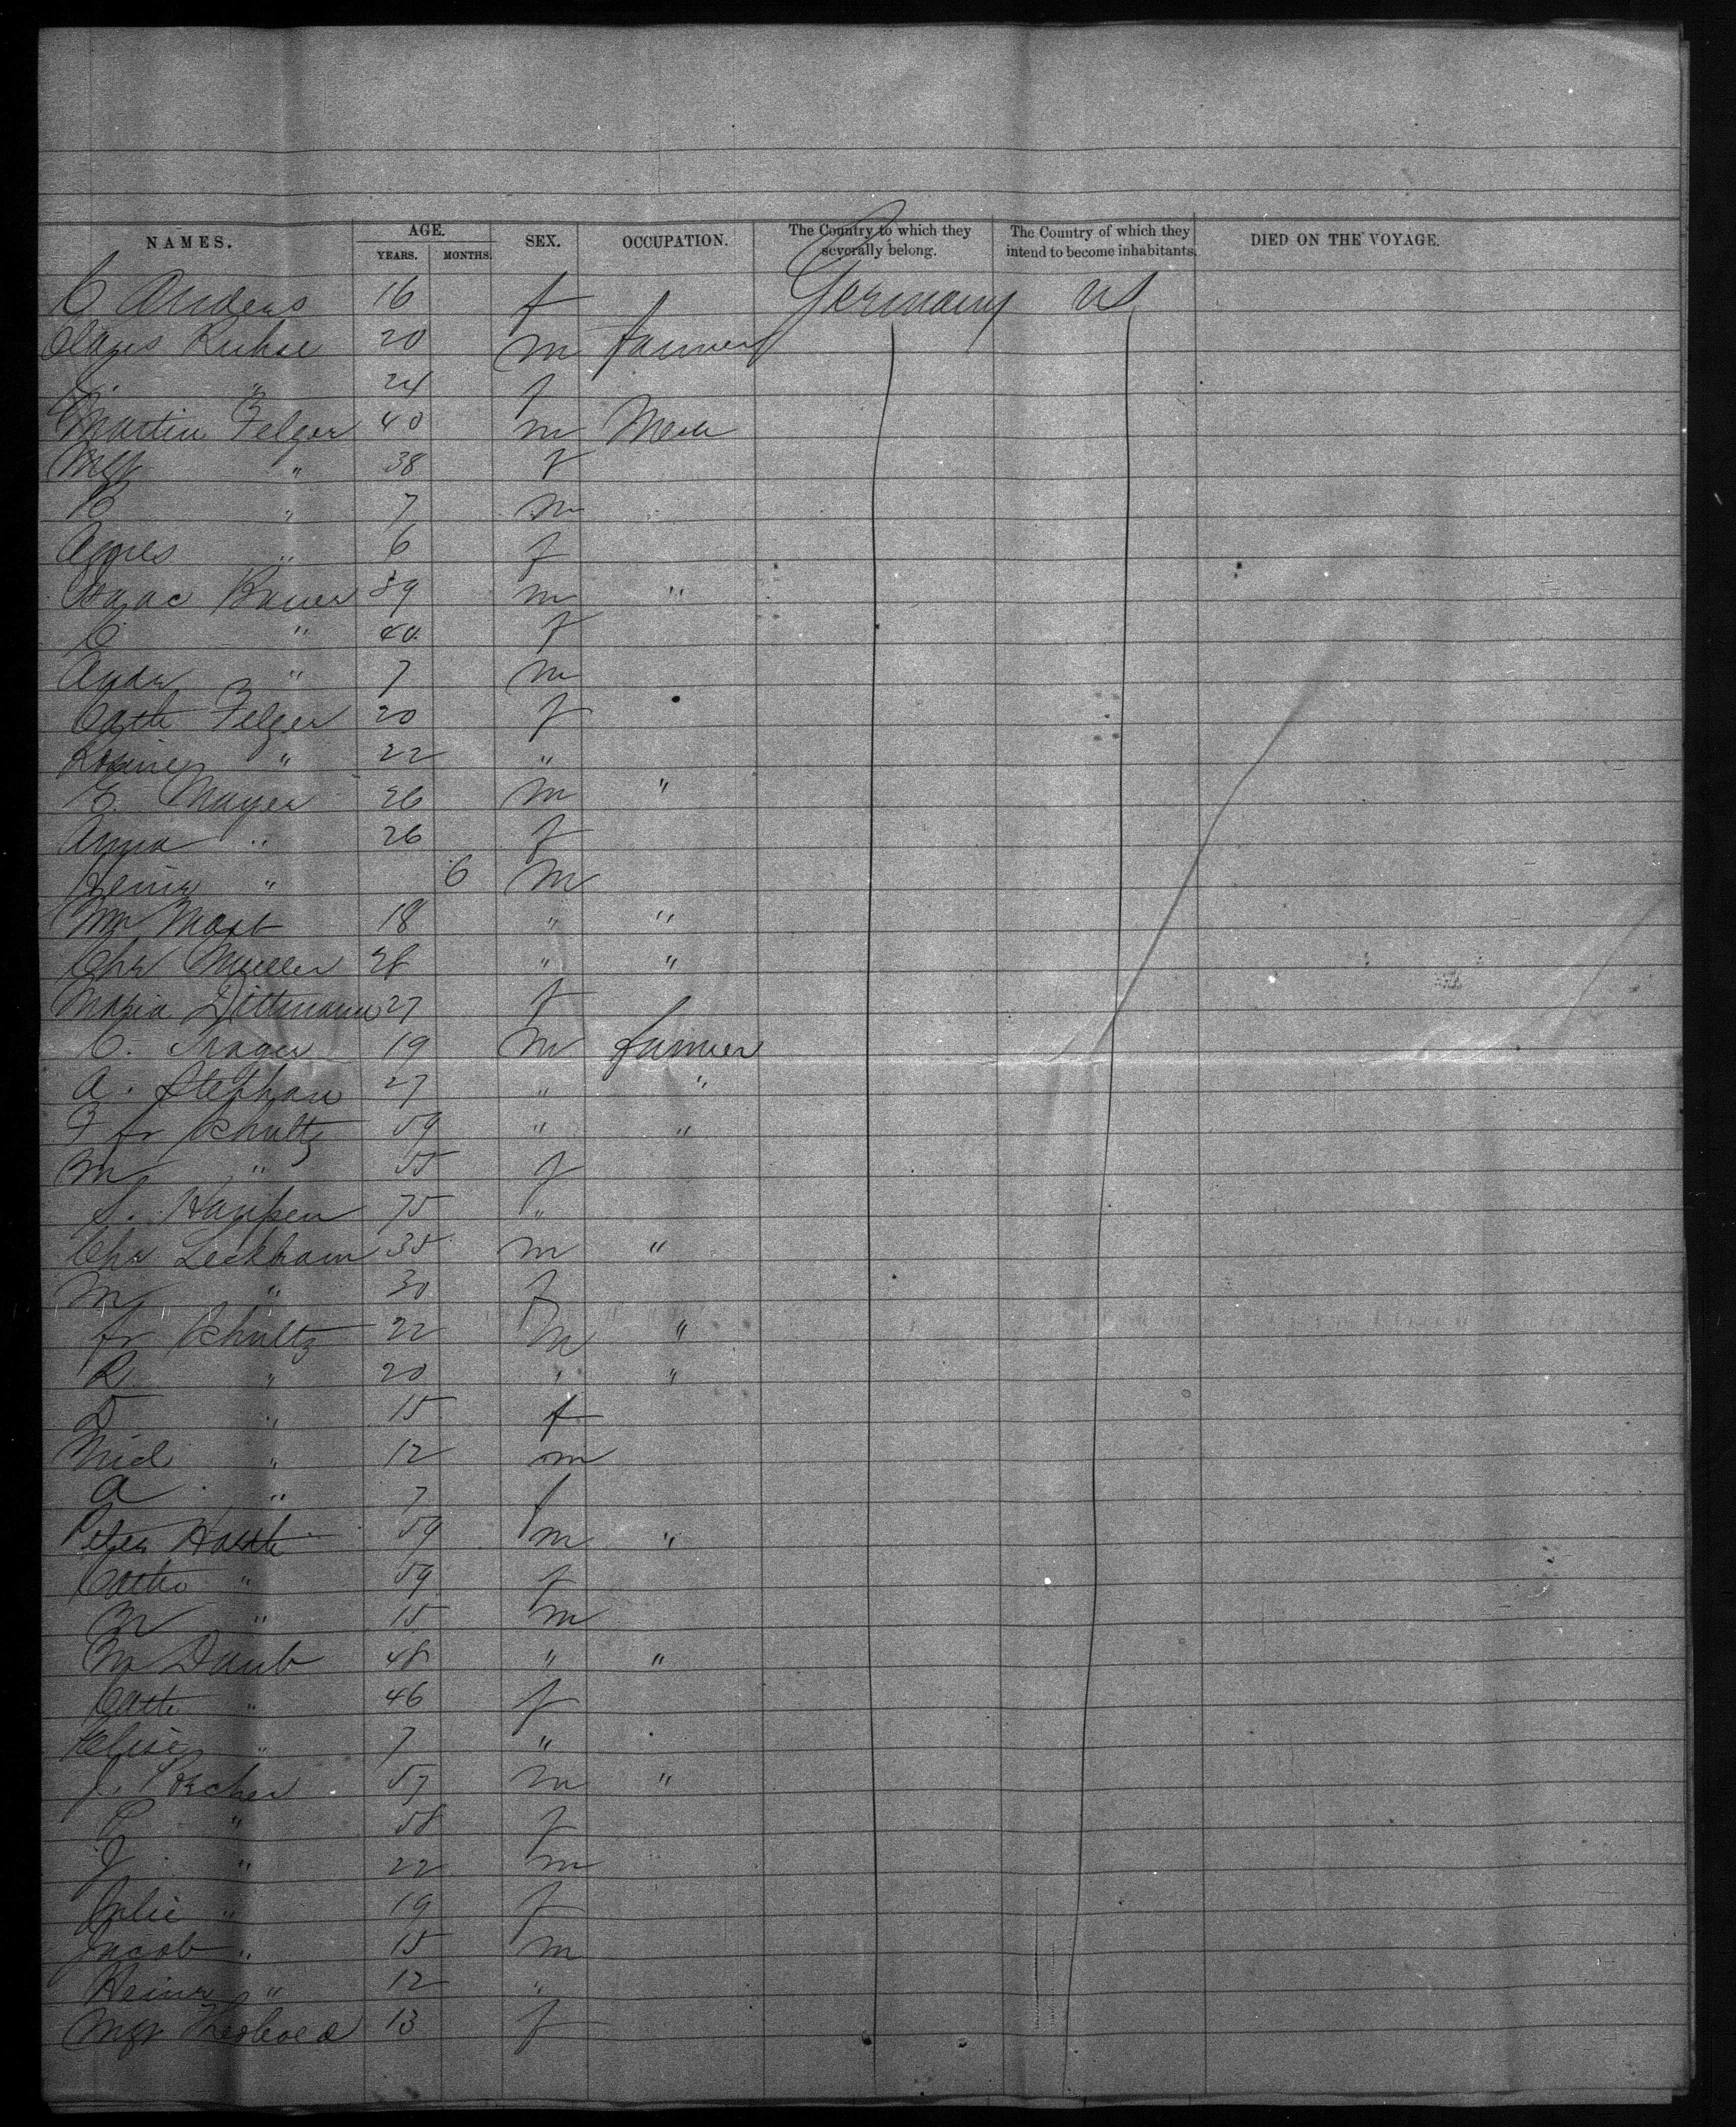 NAMES. AGE. SEX. OCCUPATION. The Country to which they severally belong. The Country of which they intend to become inhabitants. DIED ON THE VOYAGE.
YEARS. MONTHS.
C Anders 16 f Germany US
Claus 20 m farmer
" 24 f
Martin Felger 40 m Mech
Mgr " 38 f
B " 7 m
Agnes " 6 f
Isaac Bauer 39 m "
C " 40 f
Andr " 7 m
Cath Felger 20 f
Rosine " 22 "
E. Mayer 26 m "
Anna " 26 f
Heinr " 6 m
Wm Mast 18 " "
Chr Mueller 28 " "
Maria Dittmann 27 f
C. Trager 19 m farmer
A. Stephan 27 " "
F fr Schultz 59 " "
M " 55 f
S. 75 "
Chr Leckham 35 m "
M " 30 f
fr Schultz 22 m "
R " 20 " "
D " 15 f
" 12 m
A " 7 f
Peter 59 m "
Cath " 59 f
M " 15 m
M Daub 48 " "
Cath " 46 f
Elise " 7 "
J. 57 m "
C " 58 f
J. " 22 m
Julie " 19 f
Jacob " 15 m
Heinr " 12 "
Mgr Theobold 13 f